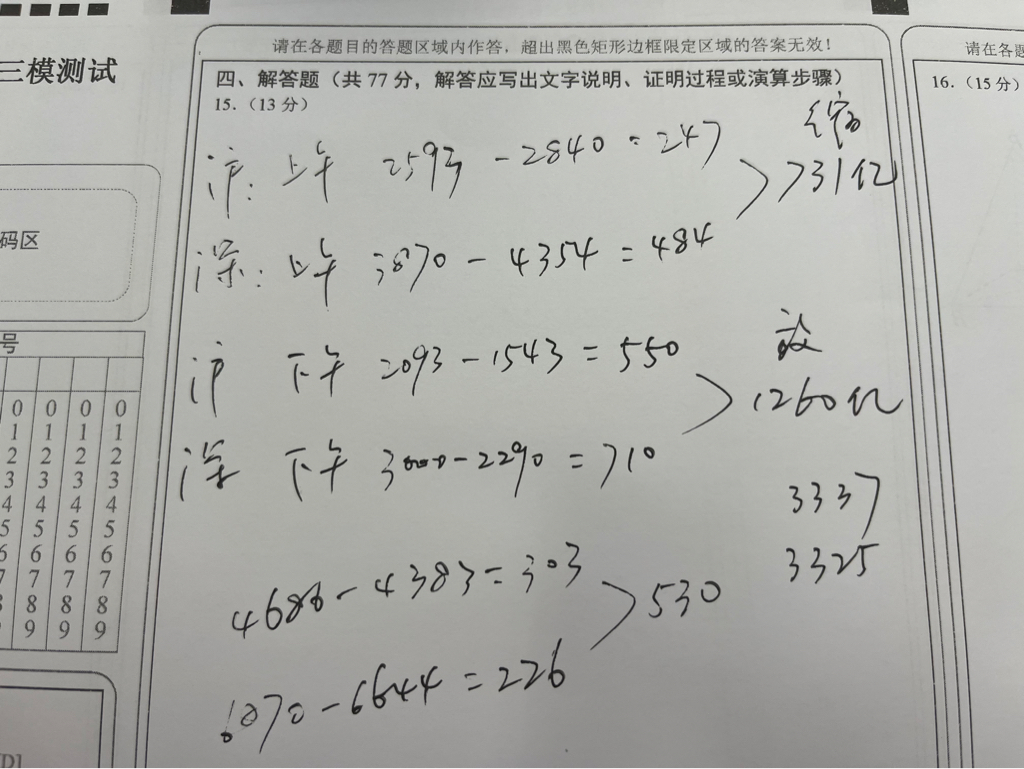 三模测试
请在各题目的答题区域内作答，超出黑色矩形边框限定区域的答案无效！
请在各题
四、解答题（共 77 分，解答应写出文字说明、证明过程或演算步骤）
15.（13 分）
16.（15 分）
沪: 上午 2593 - 2840 = 247
缩
731亿
深: 上午 3870 - 4354 = 484
沪 下午 2093 - 1543 = 550
放
1260亿
深 下午 3000 - 2290 = 710
3337
3325
4686 - 4383 = 303
530
6870 - 6644 = 226
码区
号
0 0 0 0
1 1 1 1
2 2 2 2
3 3 3 3
4 4 4 4
5 5 5 5
6 6 6 6
7 7 7 7
8 8 8 8
9 9 9